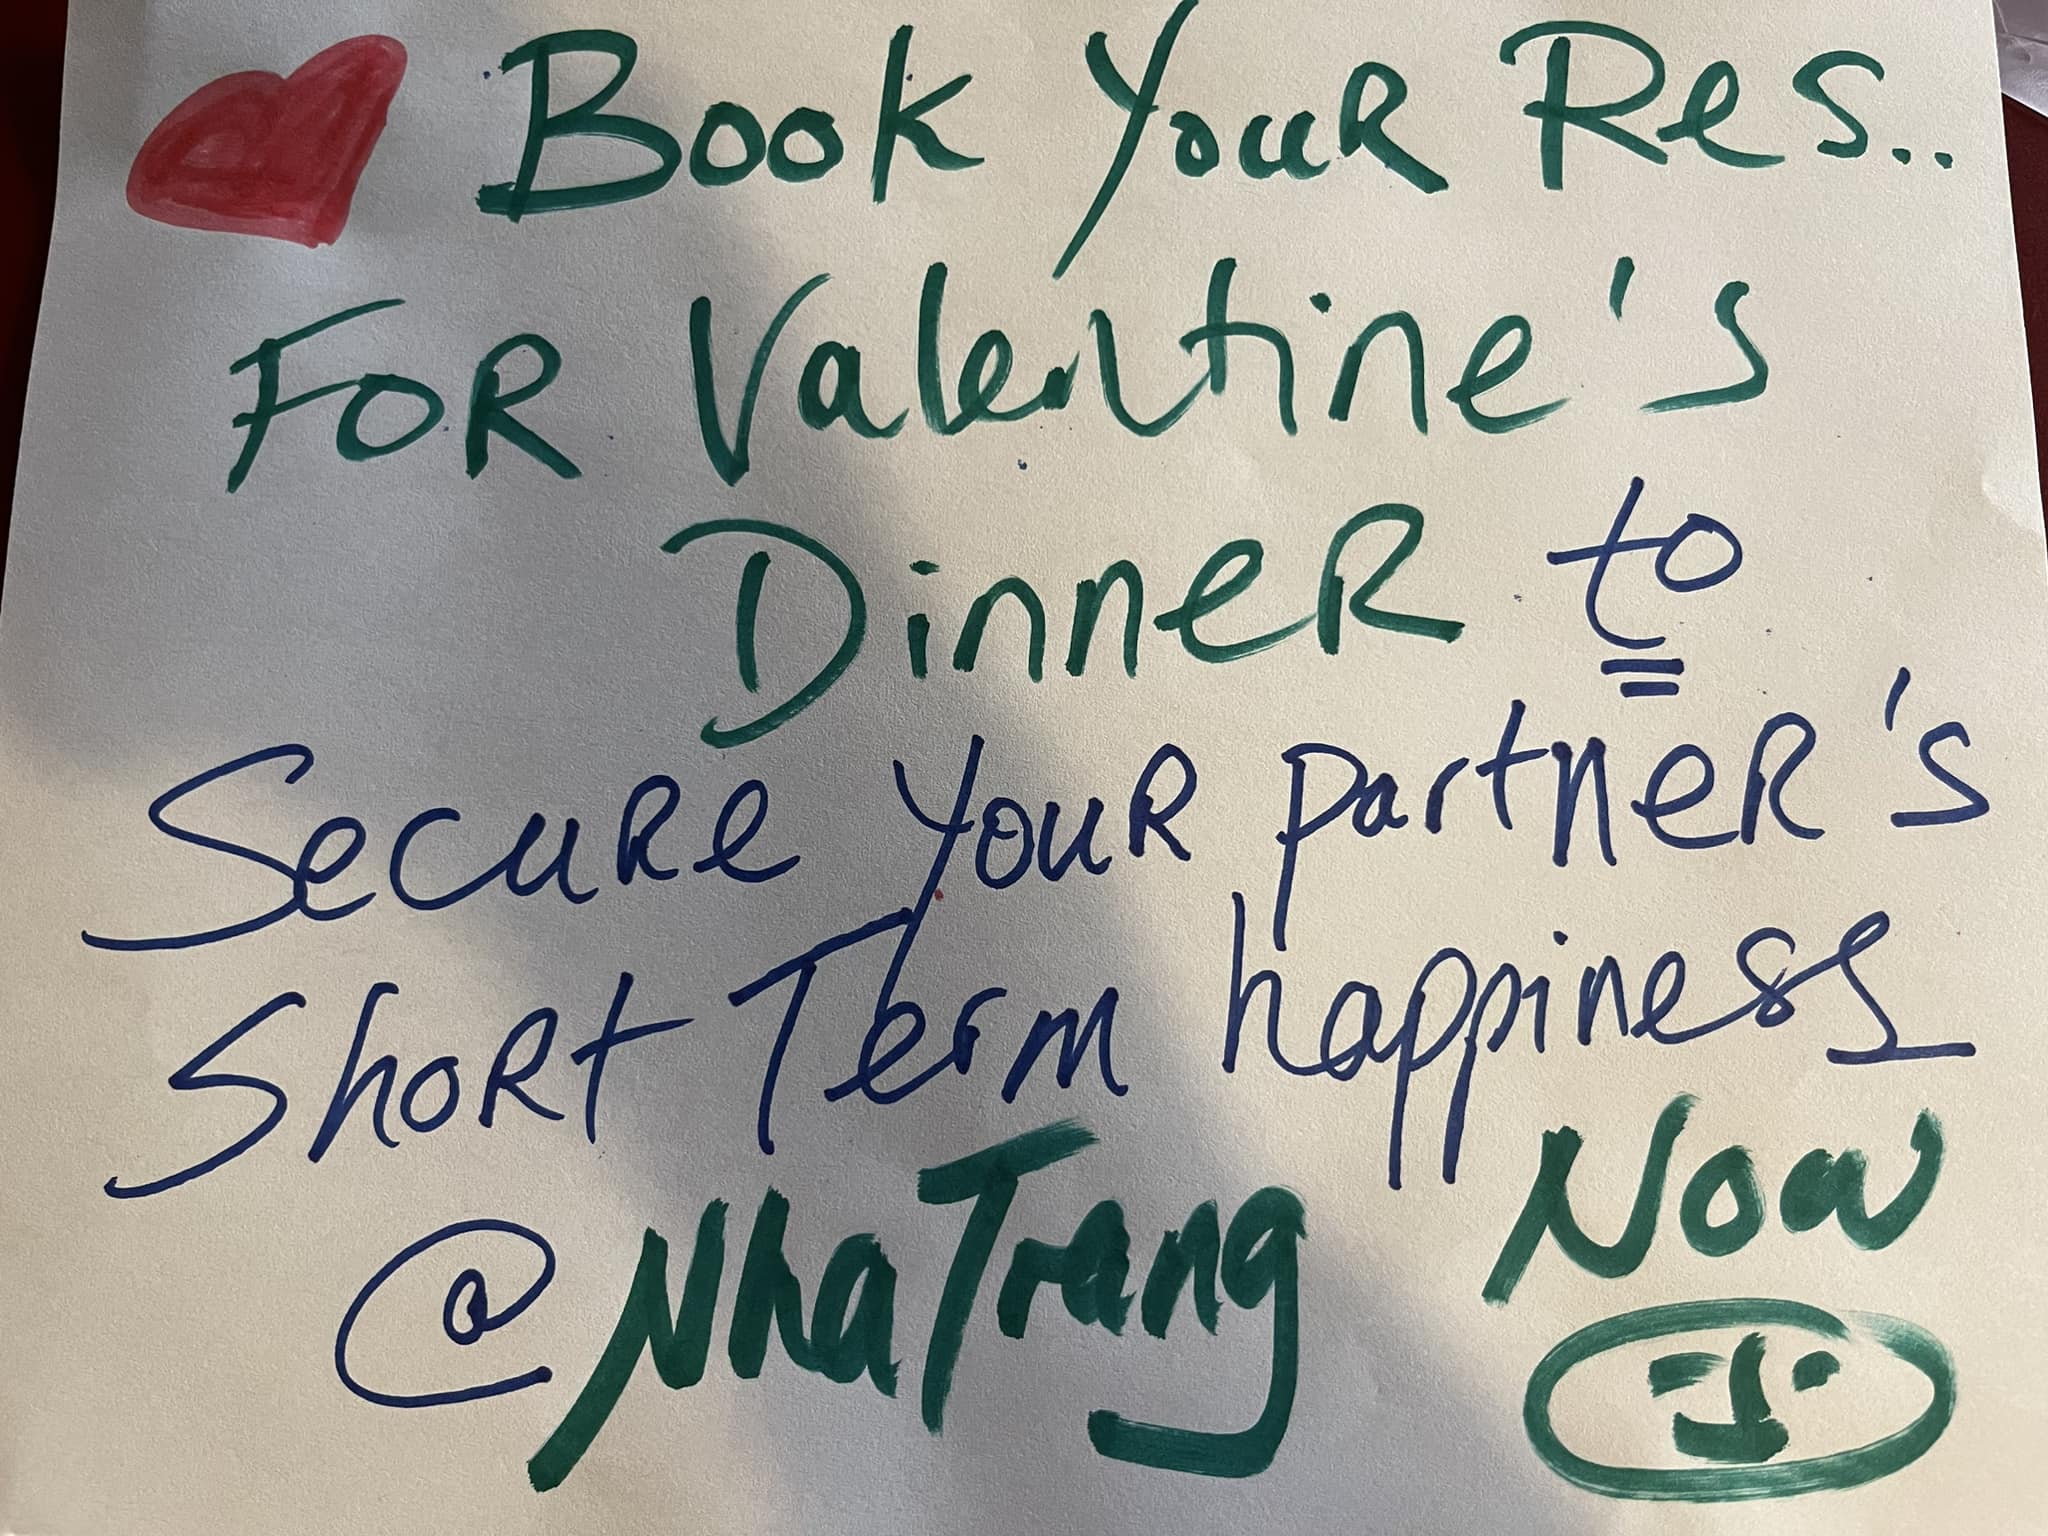 Book Your Res..
FOR Valentine's
Dinner to
Secure your partner's
Short Term happiness
@NhaTrang Now